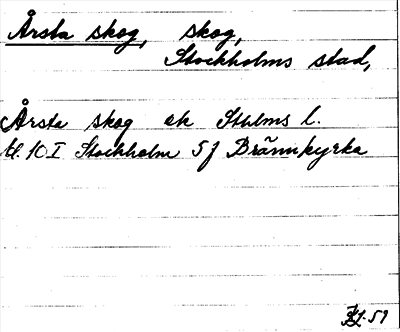 Årsta skog, skog,
Stockholms stad,
Årsta skog ek Sthlms l.
bl. 10 I Stockholm 5 J Brännkyrka
59